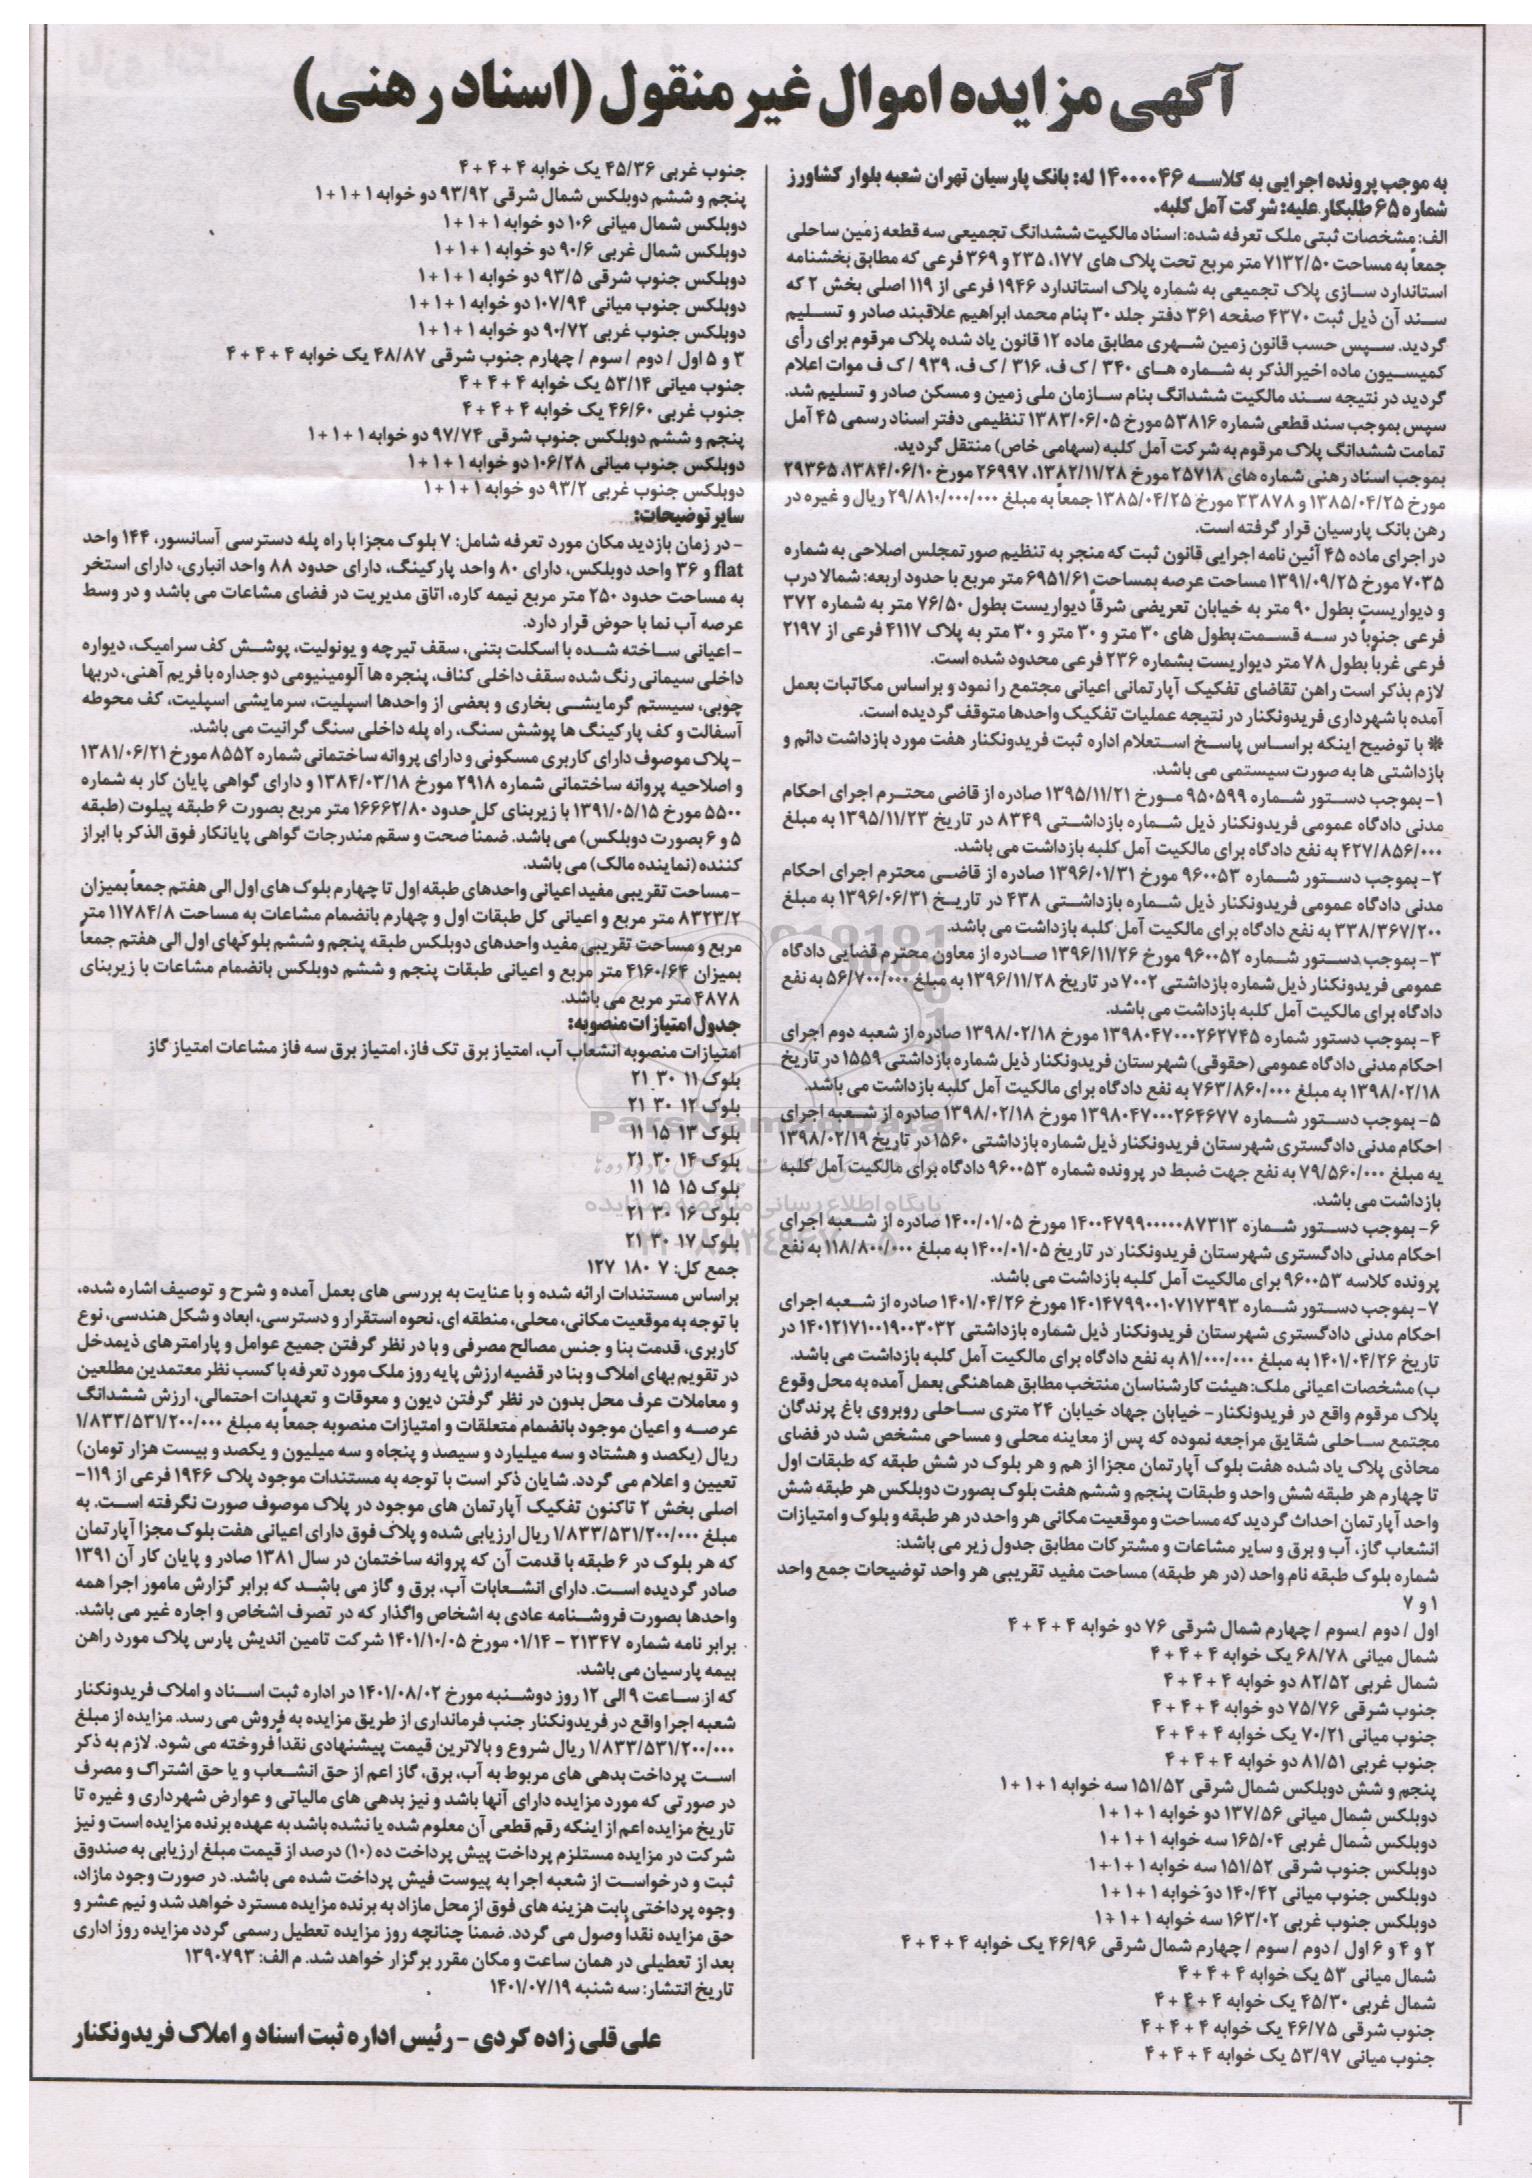 آگهی مزایده اموال غیر منقول (اسناد رهنی)
به موجب پرونده اجرایی به کلاسه ۱۴۰۰۰۰۴۶ له: بانک پارسیان تهران شعبه بلوار کشاورز
شماره ۶۵ طلبکار علیه: شرکت آمل کلبه.
الف: مشخصات ثبتی ملک تعرفه شده: اسناد مالکیت ششدانگ تجمیعی سه قطعه زمین ساحلی
جمعاً به مساحت ۷۱۳۲/۵۰ متر مربع تحت پلاک های ۱۷۷، ۲۳۵ و ۳۶۹ فرعی که مطابق بخشنامه
استاندارد سازی پلاک تجمیعی به شماره پلاک استاندارد ۱۹۴۶ فرعی از ۱۱۹ اصلی بخش ۲ که
سند آن ذیل ثبت ۴۳۷۰ صفحه ۳۶۱ دفتر جلد ۳۰ بنام محمد ابراهیم علاقبند صادر و تسلیم
گردید. سپس حسب قانون زمین شهری مطابق ماده ۱۲ قانون یاد شده پلاک مرقوم برای رأی
کمیسیون ماده اخیرالذکر به شماره های ۳۴۰ / ک ف، ۳۱۶ / ک ف، ۹۳۹ / ک ف موات اعلام
گردید در نتیجه سند مالکیت ششدانگ بنام سازمان ملی زمین و مسکن صادر و تسلیم شد.
سپس بموجب سند قطعی شماره ۵۳۸۱۶ مورخ ۱۳۸۳/۰۶/۰۵ تنظیمی دفتر اسناد رسمی ۴۵ آمل
تمامت ششدانگ پلاک مرقوم به شرکت آمل کلبه (سهامی خاص) منتقل گردید.
بموجب اسناد رهنی شماره های ۲۵۷۱۸ مورخ ۱۳۸۲/۱۱/۲۸، ۲۶۹۹۷ مورخ ۱۳۸۴/۰۶/۱۰، ۲۹۳۶۵
مورخ ۱۳۸۵/۰۴/۲۵ و ۳۳۸۷۸ مورخ ۱۳۸۵/۰۴/۲۵ جمعاً به مبلغ ۲۹/۸۱۰/۰۰۰/۰۰۰ ریال و غیره در
رهن بانک پارسیان قرار گرفته است.
در اجرای ماده ۴۵ آئین نامه اجرایی قانون ثبت که منجر به تنظیم صورتمجلس اصلاحی به شماره
۷۰۳۵ مورخ ۱۳۹۱/۰۹/۲۵ مساحت عرصه بمساحت ۶۹۵۱/۶۱ متر مربع با حدود اربعه: شمالا درب
و دیواریست بطول ۹۰ متر به خیابان تعریضی شرقاً دیواریست بطول ۷۶/۵۰ متر به شماره ۳۷۲
فرعی جنوباً در سه قسمت بطول های ۳۰ متر و ۳۰ متر و ۳۰ متر به پلاک ۴۱۱۷ فرعی از ۲۱۹۷
فرعی غرباً بطول ۷۸ متر دیواریست بشماره ۲۳۶ فرعی محدود شده است.
لازم بذکر است راهن تقاضای تفکیک آپارتمانی اعیانی مجتمع را نمود و براساس مکاتبات بعمل
آمده با شهرداری فریدونکنار در نتیجه عملیات تفکیک واحدها متوقف گردیده است.
* با توضیح اینکه براساس پاسخ استعلام اداره ثبت فریدونکنار هفت مورد بازداشت دائم و
بازداشتی ها به صورت سیستمی می باشد.
۱- بموجب دستور شماره ۹۵۰۵۹۹ مورخ ۱۳۹۵/۱۱/۲۱ صادره از قاضی محترم اجرای احکام
مدنی دادگاه عمومی فریدونکنار ذیل شماره بازداشتی ۸۳۴۹ در تاریخ ۱۳۹۵/۱۱/۲۳ به مبلغ
۴۲۷/۸۵۶/۰۰۰ به نفع دادگاه برای مالکیت آمل کلبه بازداشت می باشد.
۲- بموجب دستور شماره ۹۶۰۰۵۳ مورخ ۱۳۹۶/۰۱/۳۱ صادره از قاضی محترم اجرای احکام
مدنی دادگاه عمومی فریدونکنار ذیل شماره بازداشتی ۴۳۸ در تاریخ ۱۳۹۶/۰۶/۳۱ به مبلغ
۳۳۸/۳۶۷/۲۰۰ به نفع دادگاه برای مالکیت آمل کلبه بازداشت می باشد.
۳- بموجب دستور شماره ۹۶۰۰۵۲ مورخ ۱۳۹۶/۱۱/۲۶ صادره از معاون محترم قضایی دادگاه
عمومی فریدونکنار ذیل شماره بازداشتی ۷۰۰۲ در تاریخ ۱۳۹۶/۱۱/۲۸ به مبلغ ۵۶/۷۰۰/۰۰۰ به نفع
دادگاه برای مالکیت آمل کلبه بازداشت می باشد.
۴- بموجب دستور شماره ۱۳۹۸۰۴۷۰۰۰۲۶۲۷۴۵ مورخ ۱۳۹۸/۰۲/۱۸ صادره از شعبه دوم اجرای
احکام مدنی دادگاه عمومی (حقوقی) شهرستان فریدونکنار ذیل شماره بازداشتی ۱۵۵۹ در تاریخ
۱۳۹۸/۰۲/۱۸ به مبلغ ۷۶۳/۸۶۰/۰۰۰ به نفع دادگاه برای مالکیت آمل کلبه بازداشت می باشد.
۵- بموجب دستور شماره ۱۳۹۸۰۴۷۰۰۰۲۶۴۶۷۷ مورخ ۱۳۹۸/۰۲/۱۸ صادره از شعبه اجرای
احکام مدنی دادگستری شهرستان فریدونکنار ذیل شماره بازداشتی ۱۵۶۰ در تاریخ ۱۳۹۸/۰۲/۱۹
یه مبلغ ۷۹/۵۶۰/۰۰۰ به نفع جهت ضبط در پرونده شماره ۹۶۰۰۵۳ دادگاه برای مالکیت آمل کلبه
بازداشت می باشد.
۶- بموجب دستور شماره ۱۴۰۰۴۷۹۹۰۰۰۰۰۸۷۳۱۳ مورخ ۱۴۰۰/۰۱/۰۵ صادره از شعبه اجرای
احکام مدنی دادگستری شهرستان فریدونکنار در تاریخ ۱۴۰۰/۰۱/۰۵ به مبلغ ۱۱۸/۸۰۰/۰۰۰ به نفع
پرونده کلاسه ۹۶۰۰۵۳ برای مالکیت آمل کلبه بازداشت می باشد.
۷- بموجب دستور شماره ۱۴۰۱۴۷۹۹۰۰۱۰۷۱۷۳۹۳ مورخ ۱۴۰۱/۰۴/۲۶ صادره از شعبه اجرای
احکام مدنی دادگستری شهرستان فریدونکنار ذیل شماره بازداشتی ۱۴۰۱۲۱۷۱۰۰۱۹۰۰۳۰۳۲ در
تاریخ ۱۴۰۱/۰۴/۲۶ به مبلغ ۸۱/۰۰۰/۰۰۰ به نفع دادگاه برای مالکیت آمل کلبه بازداشت می باشد.
ب) مشخصات اعیانی ملک: هیئت کارشناسان منتخب مطابق هماهنگی بعمل آمده به محل وقوع
پلاک مرقوم واقع در فریدونکنار – خیابان جهاد خیابان ۲۴ متری ساحلی روبروی باغ پرندگان
مجتمع ساحلی شقایق مراجعه نموده که پس از معاینه محلی و مساحی مشخص شد در فضای
محاذی پلاک یاد شده هفت بلوک آپارتمان مجزا از هم و هر بلوک در شش طبقه که طبقات اول
تا چهارم هر طبقه شش واحد و طبقات پنجم و ششم هفت بلوک بصورت دوبلکس هر طبقه شش
واحد آپارتمان احداث گردید که مساحت و موقعیت مکانی هر واحد در هر طبقه و بلوک و امتیازات
انشعاب گاز، آب و برق و سایر مشاعات و مشترکات مطابق جدول زیر می باشد:
شماره بلوک طبقه نام واحد (در هر طبقه) مساحت مفید تقریبی هر واحد توضیحات جمع واحد
۱ و ۷
اول / دوم / سوم / چهارم شمال شرقی ۷۶ دو خوابه ۴ + ۴ + ۴
شمال میانی ۶۸/۷۸ یک خوابه ۴ + ۴ + ۴
شمال غربی ۸۲/۵۲ دو خوابه ۴ + ۴ + ۴
جنوب شرقی ۷۵/۷۶ دو خوابه ۴ + ۴ + ۴
جنوب میانی ۷۰/۲۱ یک خوابه ۴ + ۴ + ۴
جنوب غربی ۸۱/۵۱ دو خوابه ۴ + ۴ + ۴
پنجم و شش دوبلکس شمال شرقی ۱۵۱/۵۲ سه خوابه ۱ + ۱ + ۱
دوبلکس شمال میانی ۱۳۷/۵۶ دو خوابه ۱ + ۱ + ۱
دوبلکس شمال غربی ۱۶۵/۰۴ سه خوابه ۱ + ۱ + ۱
دوبلکس جنوب شرقی ۱۵۱/۵۲ سه خوابه ۱ + ۱ + ۱
دوبلکس جنوب میانی ۱۴۰/۴۲ دو خوابه ۱ + ۱ + ۱
دوبلکس جنوب غربی ۱۶۳/۰۲ سه خوابه ۱ + ۱ + ۱
۲ و ۴ و ۶ اول / دوم / سوم / چهارم شمال شرقی ۴۶/۹۶ یک خوابه ۴ + ۴ + ۴
شمال میانی ۵۳ یک خوابه ۴ + ۴ + ۴
شمال غربی ۴۵/۳۰ یک خوابه ۴ + ۴ + ۴
جنوب شرقی ۴۶/۷۵ یک خوابه ۴ + ۴ + ۴
جنوب میانی ۵۳/۹۷ یک خوابه ۴ + ۴ + ۴
جنوب غربی ۴۵/۳۶ یک خوابه ۴ + ۴ + ۴
پنجم و ششم دوبلکس شمال شرقی ۹۳/۹۲ دو خوابه ۱ + ۱ + ۱
دوبلکس شمال میانی ۱۰۶ دو خوابه ۱ + ۱ + ۱
دوبلکس شمال غربی ۹۰/۶ دو خوابه ۱ + ۱ + ۱
دوبلکس جنوب شرقی ۹۳/۵ دو خوابه ۱ + ۱ + ۱
دوبلکس جنوب میانی ۱۰۷/۹۴ دو خوابه ۱ + ۱ + ۱
دوبلکس جنوب غربی ۹۰/۷۲ دو خوابه ۱ + ۱ + ۱
۳ و ۵ اول / دوم / سوم / چهارم جنوب شرقی ۴۸/۸۷ یک خوابه ۴ + ۴ + ۴
جنوب میانی ۵۳/۱۴ یک خوابه ۴ + ۴ + ۴
جنوب غربی ۴۶/۶۰ یک خوابه ۴ + ۴ + ۴
پنجم و ششم دوبلکس جنوب شرقی ۹۷/۷۴ دو خوابه ۱ + ۱ + ۱
دوبلکس جنوب میانی ۱۰۶/۲۸ دو خوابه ۱ + ۱ + ۱
دوبلکس جنوب غربی ۹۳/۲ دو خوابه ۱ + ۱ + ۱
سایر توضیحات:
– در زمان بازدید مکان مورد تعرفه شامل: ۷ بلوک مجزا با راه پله دسترسی آسانسور، ۱۴۴ واحد
flat و ۳۶ واحد دوبلکس، دارای ۸۰ واحد پارکینگ، دارای حدود ۸۸ واحد انباری، دارای استخر
به مساحت حدود ۲۵۰ متر مربع نیمه کاره، اتاق مدیریت در فضای مشاعات می باشد و در وسط
عرصه آب نما با حوض قرار دارد.
– اعیانی ساخته شده با اسکلت بتنی، سقف تیرچه و یونولیت، پوشش کف سرامیک، دیواره
داخلی سیمانی رنگ شده سقف داخلی کناف، پنجره ها آلومینیومی دو جداره با فریم آهنی، دربها
چوبی، سیستم گرمایشی بخاری و بعضی از واحدها اسپلیت، سرمایشی اسپلیت، کف محوطه
آسفالت و کف پارکینگ ها پوشش سنگ، راه پله داخلی سنگ گرانیت می باشد.
– پلاک موصوف دارای کاربری مسکونی و دارای پروانه ساختمانی شماره ۸۵۵۲ مورخ ۱۳۸۱/۰۶/۲۱
و اصلاحیه پروانه ساختمانی شماره ۲۹۱۸ مورخ ۱۳۸۴/۰۳/۱۸ و دارای گواهی پایان کار به شماره
۵۵۰۰ مورخ ۱۳۹۱/۰۵/۱۵ با زیربنای کل حدود ۱۶۶۶۲/۸۰ متر مربع بصورت ۶ طبقه پیلوت (طبقه
۵ و ۶ بصورت دوبلکس) می باشد. ضمناً صحت و سقم مندرجات گواهی پایانکار فوق الذکر با ابراز
کننده (نماینده مالک) می باشد.
– مساحت تقریبی مفید اعیانی واحدهای طبقه اول تا چهارم بلوک های اول الی هفتم جمعاً بمیزان
۸۳۲۳/۲ متر مربع و اعیانی کل طبقات اول و چهارم بانضمام مشاعات به مساحت ۱۱۷۸۴/۸ متر
مربع و مساحت تقریبی مفید واحدهای دوبلکس طبقه پنجم و ششم بلوکهای اول الی هفتم جمعاً
بمیزان ۴۱۶۰/۶۴ متر مربع و اعیانی طبقات پنجم و ششم دوبلکس بانضمام مشاعات با زیربنای
۴۸۷۸ متر مربع می باشد.
جدول امتیازات منصوبه:
امتیازات منصوبه انشعاب آب، امتیاز برق تک فاز، امتیاز برق سه فاز مشاعات امتیاز گاز
بلوک ۱۱ ۳۰ ۲۱
بلوک ۱۲ ۳۰ ۲۱
بلوک ۱۳ ۱۵ ۱۱
بلوک ۱۴ ۳۰ ۲۱
بلوک ۱۵ ۱۵ ۱۱
بلوک ۱۶ ۳۰ ۲۱
بلوک ۱۷ ۳۰ ۲۱
جمع کل: ۷ ۱۸۰ ۱۲۷
براساس مستندات ارائه شده و با عنایت به بررسی های بعمل آمده و شرح و توصیف اشاره شده،
با توجه به موقعیت مکانی، محلی، منطقه ای، نحوه استقرار و دسترسی، ابعاد و شکل هندسی، نوع
کاربری، قدمت بنا و جنس مصالح مصرفی و با در نظر گرفتن جمیع عوامل و پارامترهای ذیمدخل
در تقویم بهای املاک و بنا در قضیه ارزش پایه روز ملک مورد تعرفه با کسب نظر معتمدین مطلعین
و معاملات عرف محل بدون در نظر گرفتن دیون و معوقات و تعهدات احتمالی، ارزش ششدانگ
عرصه و اعیان موجود بانضمام متعلقات و امتیازات منصوبه جمعاً به مبلغ ۱/۸۳۳/۵۳۱/۲۰۰/۰۰۰
ریال (یکصد و هشتاد و سه میلیارد و سیصد و پنجاه و سه میلیون و یکصد و بیست هزار تومان)
تعیین و اعلام می گردد. شایان ذکر است با توجه به مستندات موجود پلاک ۱۹۴۶ فرعی از ۱۱۹-
اصلی بخش ۲ تاکنون تفکیک آپارتمان های موجود در پلاک موصوف صورت نگرفته است. به
مبلغ ۱/۸۳۳/۵۳۱/۲۰۰/۰۰۰ ریال ارزیابی شده و پلاک فوق دارای اعیانی هفت بلوک مجزا آپارتمان
که هر بلوک در ۶ طبقه با قدمت آن که پروانه ساختمان در سال ۱۳۸۱ صادر و پایان کار آن ۱۳۹۱
صادر گردیده است. دارای انشعابات آب، برق و گاز می باشد که برابر گزارش مامور اجرا همه
واحدها بصورت فروشنامه عادی به اشخاص واگذار که در تصرف اشخاص و اجاره غیر می باشد.
برابر نامه شماره ۲۱۳۴۷ – ۰۱/۱۴ مورخ ۱۴۰۱/۱۰/۰۵ شرکت تامین اندیش پارس پلاک مورد راهن
بیمه پارسیان می باشد.
که از ساعت ۹ الی ۱۲ روز دوشنبه مورخ ۱۴۰۱/۰۸/۰۲ در اداره ثبت اسناد و املاک فریدونکنار
شعبه اجرا واقع در فریدونکنار جنب فرمانداری از طریق مزایده به فروش می رسد. مزایده از مبلغ
۱/۸۳۳/۵۳۱/۲۰۰/۰۰۰ ریال شروع و بالاترین قیمت پیشنهادی نقداً فروخته می شود. لازم به ذکر
است پرداخت بدهی های مربوط به آب، برق، گاز اعم از حق انشعاب و یا حق اشتراک و مصرف
در صورتی که مورد مزایده دارای آنها باشد و نیز بدهی های مالیاتی و عوارض شهرداری و غیره تا
تاریخ مزایده اعم از اینکه رقم قطعی آن معلوم شده یا نشده باشد به عهده برنده مزایده است و نیز
شرکت در مزایده مستلزم پرداخت پیش پرداخت ده (۱۰) درصد از قیمت مبلغ ارزیابی به صندوق
ثبت و درخواست از شعبه اجرا به پیوست فیش پرداخت شده می باشد. در صورت وجود مازاد،
وجوه پرداختی بابت هزینه های فوق از محل مازاد به برنده مزایده مسترد خواهد شد و نیم عشر و
حق مزایده نقداً وصول می گردد. ضمناً چنانچه روز مزایده تعطیل رسمی گردد مزایده روز اداری
بعد از تعطیلی در همان ساعت و مکان مقرر برگزار خواهد شد. م الف: ۱۳۹۰۷۹۳
تاریخ انتشار: سه شنبه ۱۴۰۱/۰۷/۱۹
علی قلی زاده کردی – رئیس اداره ثبت اسناد و املاک فریدونکنار
ParsNamadData
پایگاه اطلاع رسانی مناقصه و مزایده